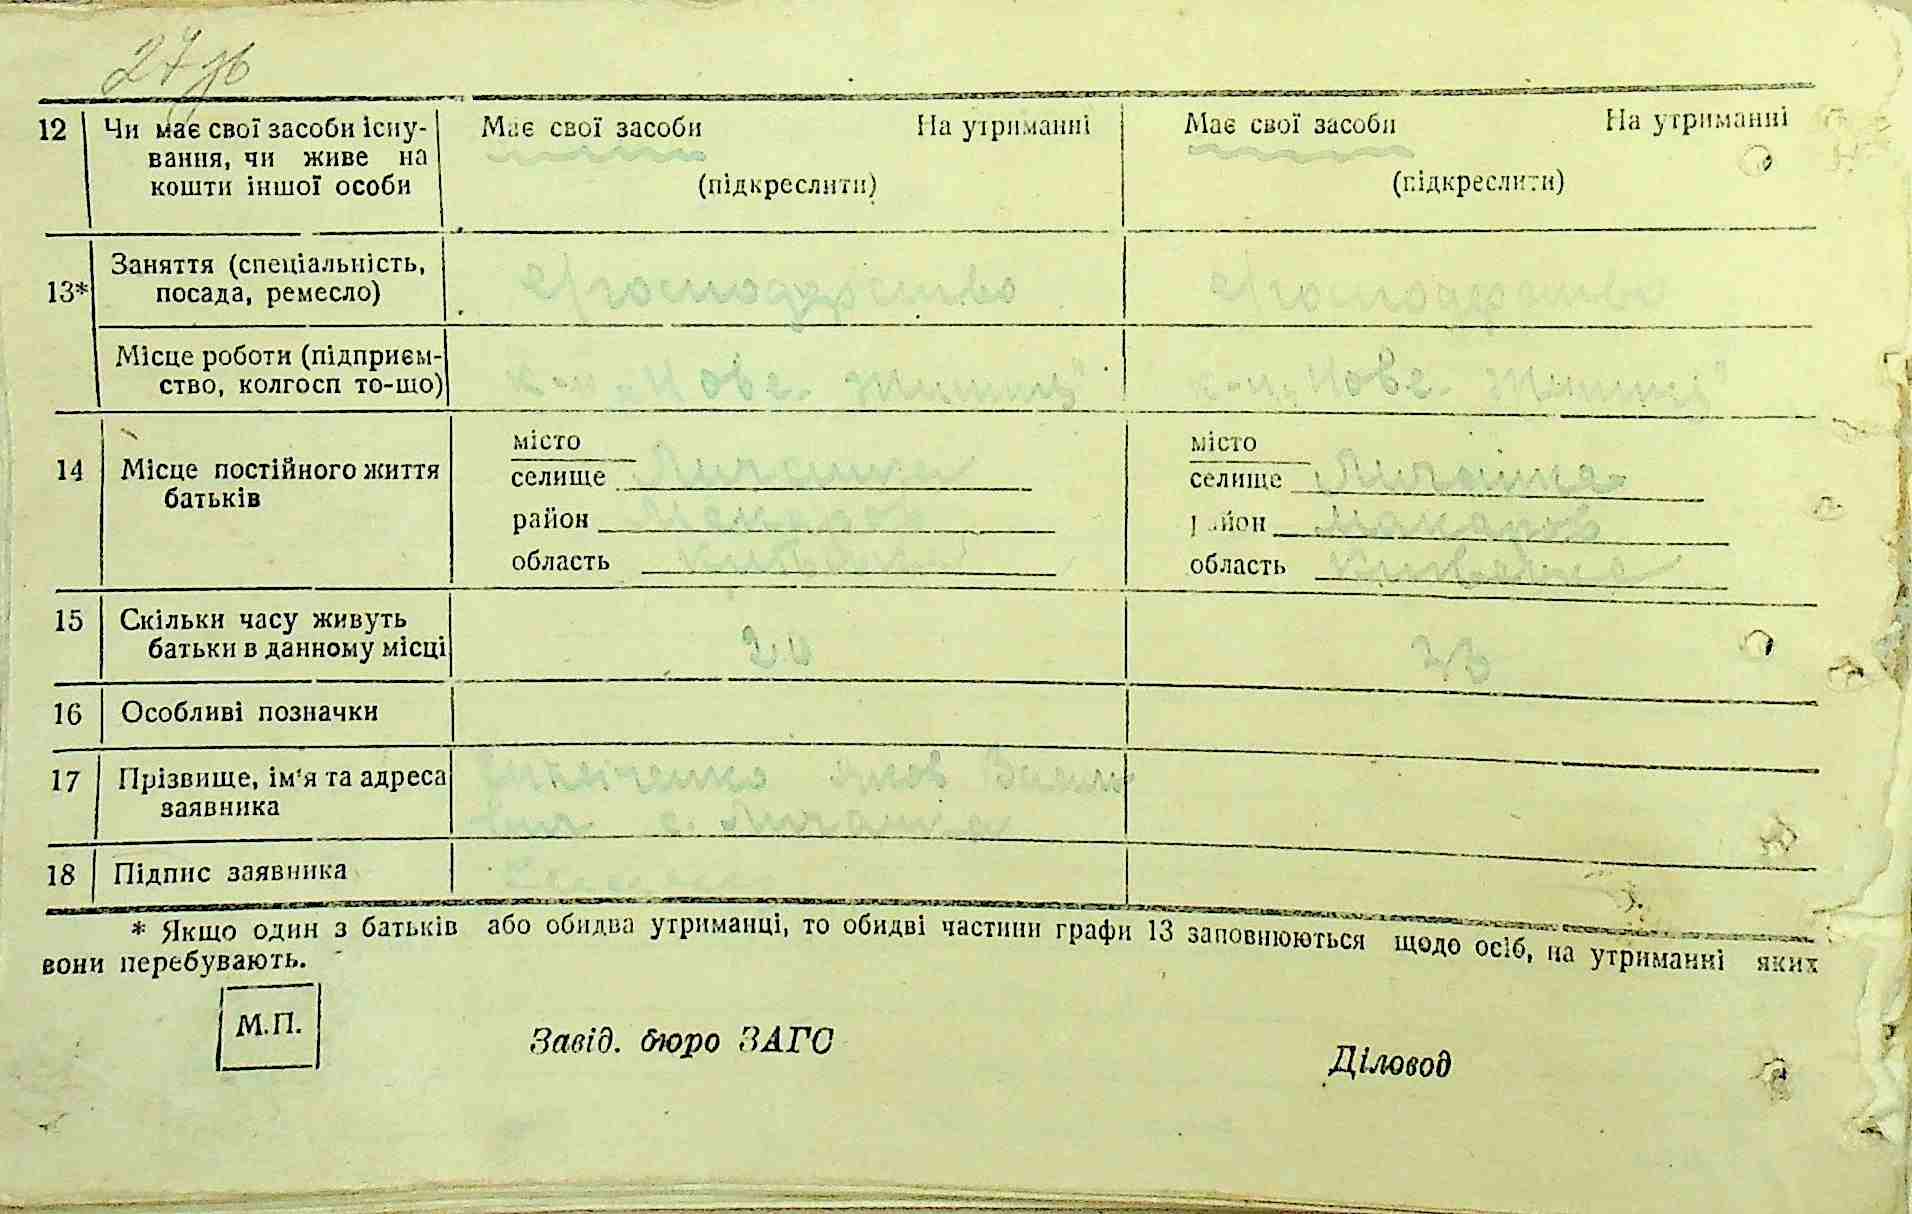 27 зв
12 Чи має свої засоби існу- Має свої засоби На утриманні Має свої засоби На утриманні
вання, чи живе на
кошти іншої особи (підкреслити) (підкреслити)
Заняття (спеціальність, с/господарство с/господарство
13* посада, ремесло)
Місце роботи (підприєм- "Нове життя" "Нове життя"
ство, колгосп то-що)
місто місто
14 Місце постійного життя селище Личанка селище Личанка
батьків район Макарів район Макарів
область Київська область Київська
15 Скільки часу живуть
батьки в данному місці 33
16 Особливі позначки
17 Прізвище, ім'я та адреса Яков Васильо
заявника вич с. Личанка
18 Підпис заявника
* Якщо один з батьків або обидва утриманці, то обидві частини графи 13 заповнюються щодо осіб, на утриманні яких
вони перебувають.
М.П. Завід. бюро ЗАГС Діловод